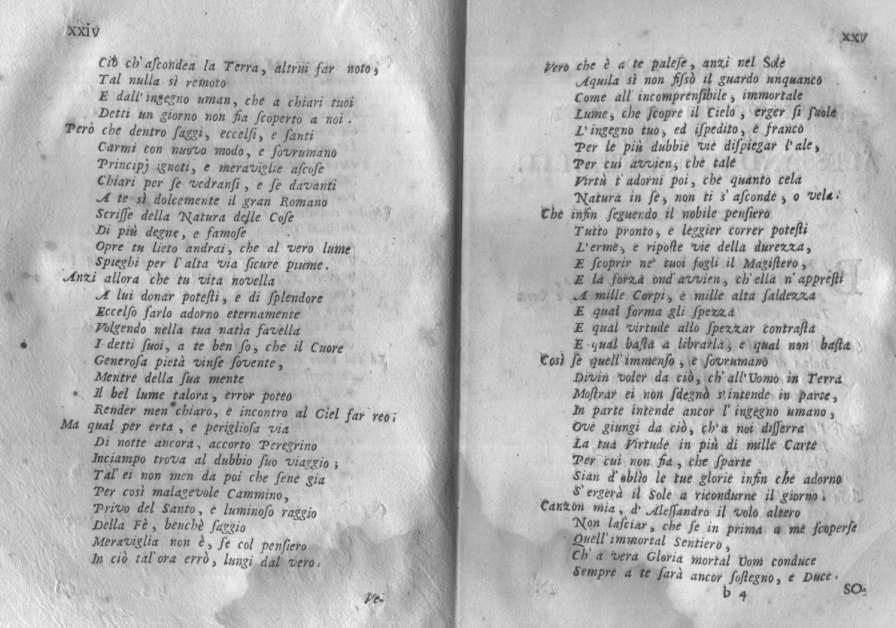 XXIV
Ciò ch'aſcondea la Terra, altrui far noto,
Tal nulla sì remoto
E dall'ingegno uman, che a chiari tuoi
Detti un giorno non fia ſcoperto a noi.
Però che dentro ſaggi, eccelſi, e ſanti
Carmi con nuovo modo, e ſovrumano
Principj ignoti, e meraviglie aſcoſe
Chiari per ſe vedranſi, e ſe davanti
A te sì dolcemente il gran Romano
Scriſſe della Natura delle Coſe
Di più degne, e famoſe
Opre tu lieto andrai, che al vero lume
Spieghi per l'alta via ſicure piume.
Anzi allora che tu vita novella
A lui donar poteſti, e di ſplendore
Eccelſo farlo adorno eternamente
Volgendo nella tua natìa favella
I detti ſuoi, a te ben ſo, che il Cuore
Generoſa pietà vinſe ſovente,
Mentre della ſua mente
Il bel lume talora, error poteo
Render men chiaro, e incontro al Ciel far reo;
Ma qual per erta, e periglioſa via
Di notte ancora, accorto Peregrino
Inciampo trova al dubbio ſuo viaggio;
Tal' ei non men da poi che ſene gia
Per così malagevole Cammino,
Privo del Santo, e luminoſo raggio
Della Fè, benchè ſaggio
Meraviglia non è, ſe col penſiero
In ciò tal'ora errò, lungi dal vero.
Ve-
XXV
Vero che è a te paleſe, anzi nel Sole
Aquila sì non fiſsò il guardo unquanco
Come all' incomprenſibile, immortale
Lume, che ſcopre il Cielo, erger ſi ſuole
L'ingegno tuo, ed iſpedito, e franco
Per le più dubbie vie diſpiegar l'ale,
Per cui avvien, che tale
Virtù t'adorni poi, che quanto cela
Natura in ſe, non ti s'aſconde, o vela.
Che infin ſeguendo il nobile penſiero
Tutto pronto, e leggier correr poteſti
L'erme, e ripoſte vie della durezza,
E ſcoprir ne' tuoi fogli il Magiſtero,
E la forza ond'avvien, ch'ella n'appreſti
A mille Corpi, e mille alta ſaldezza
E qual forma gli ſpezza
E qual virtude allo ſpezzar contraſta
E qual baſta a librarla, e qual non baſta
Così ſe quell'immenſo, e ſovrumano
Divin voler da ciò, ch'all'Uomo in Terra
Moſtrar ei non ſdegnò s'intende in parte,
In parte intende ancor l'ingegno umano,
Ove giungi da ciò, ch'a noi diſſerra
La tua Virtude in più di mille Carte
Per cui non fia, che ſparte
Sian d'oblìo le tue glorie infin che adorno
S'ergerà il Sole a ricondurne il giorno.
Canzon mia, d' Aleſſandro il volo altero
Non laſciar, che ſe in prima a me ſcoperſe
Quell'immortal Sentiero,
Ch' a vera Gloria mortal Uom conduce
Sempre a te ſarà ancor ſoſtegno, e Duce.
b 4
SO-